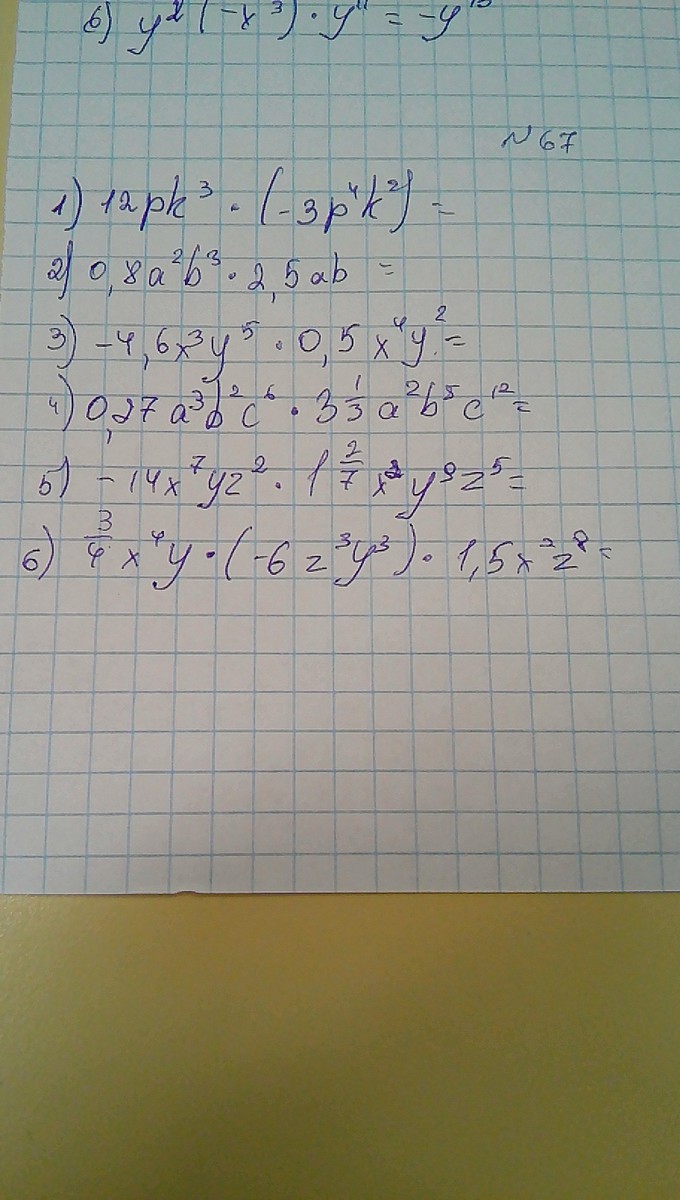 6) y² (-x³) · y¹¹ = -y¹³
№ 67
1) 12pk³ · (-3p⁴k²) =
2) 0,8a²b³ · 2,5ab =
3) -4,6x³y⁵ · 0,5x⁴y² =
4) 0,27a³b²c⁶ · 3 1/3 a²b⁵c¹² =
5) -14x⁷yz² · 1 2/7 x²y⁹z⁵ =
6) 3/4 x⁴y · (-6z³y³) · 1,5x³z⁸ =